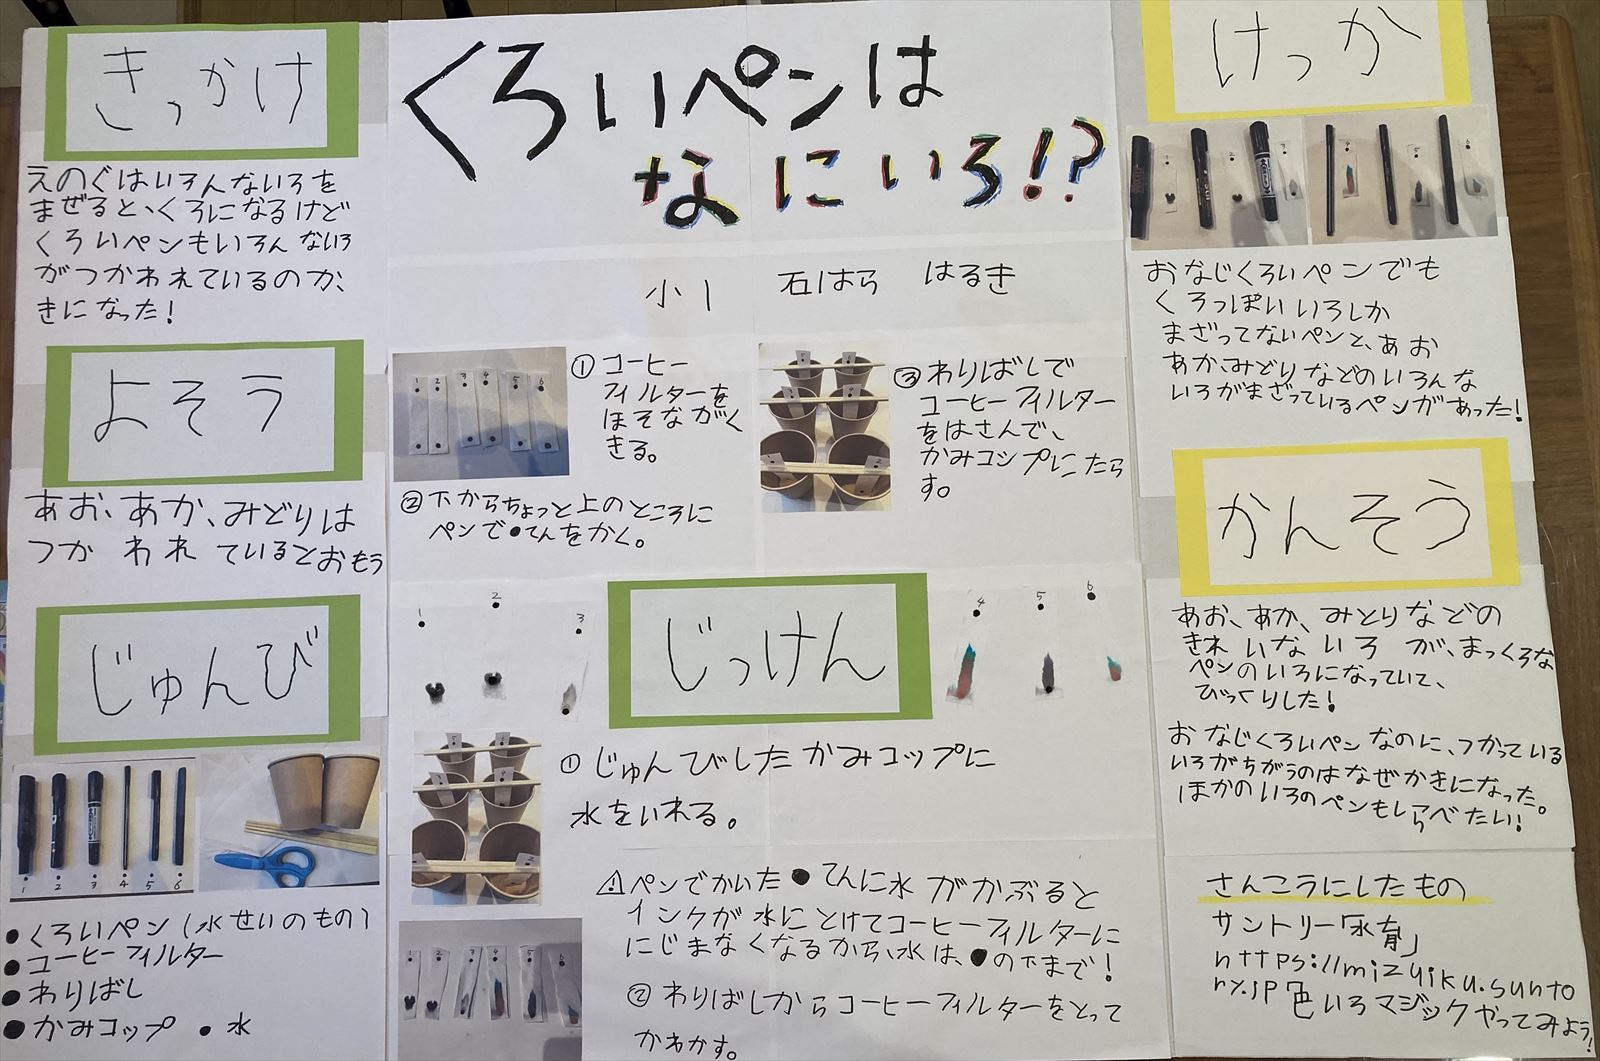 くろいペンは
なにいろ!?
小1 石はら はるき
きっかけ
えのぐはいろんないろを
まぜると、くろになるけど
くろいペンもいろんないろ
がつかわれているのか、
きになった!
よそう
あお、あか、みどりは
つかわれているとおもう
じゅんび
1 2 3 4 5 6
●くろいペン(水せいのもの)
●コーヒーフィルター
●わりばし
●かみコップ ●水
1 2 3 4 5 6
①コーヒー
フィルターを
ほそながく
きる。
②下からちょっと上のところに
ペンで●てんをかく。
③わりばしで
コーヒーフィルター
をはさんで、
かみコップにたら
す。
1 2 3
じっけん
4 5 6
①じゅんびしたかみコップに
水をいれる。
⚠ペンでかいた●てんに水がかぶると
インクが水にとけてコーヒーフィルターに
にじまなくなるから、水は、●の下まで!
②わりばしからコーヒーフィルターをとって
かわかす。
1 2 3 4 5 6
けっか
おなじくろいペンでも
くろっぽいいろしか
まざってないペンと、あお
あか、みどりなどのいろんな
いろがまざっているペンがあった!
かんそう
あお、あか、みとりなどの
きれいないろが、まっくろな
ペンのいろになっていて、
びっくりした!
おなじくろいペンなのに、つかっている
いろがちがうのはなぜかきになった。
ほかのいろのペンもしらべたい!
さんこうにしたもの
サントリー「水育」
https://mizuiku.sunto
ry.jp 色いろマジックやってみよう!